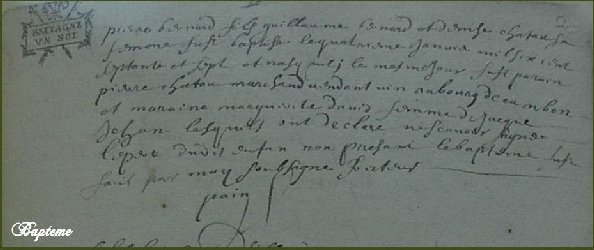 BRETAGNE
UN SOL
2
pierre bernard fils guillaume bernard et denise chatau sa
femme fust baptise le quatriesme janvie mil six cent
septante et sept et nasquit le mesme jour fust parain
pierre chatau marchand vendant vin au bourg de cambon
et maraine marguerite david femme de jacque
lesquels ont declare ne scavoir signer
le pere dudit enfan non presant le bapteme fust
faict par moy soubsigne recteur
pain
Bapteme